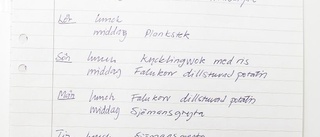 Lör lunch
middag Plankstek
Sön lunch Kycklingwok med ris
middag Falukorv dillstuvad potatis
Mån lunch Falukorv dillstuvad potatis
middag Sjömansgryta
Tis lunch Sjömansgryta